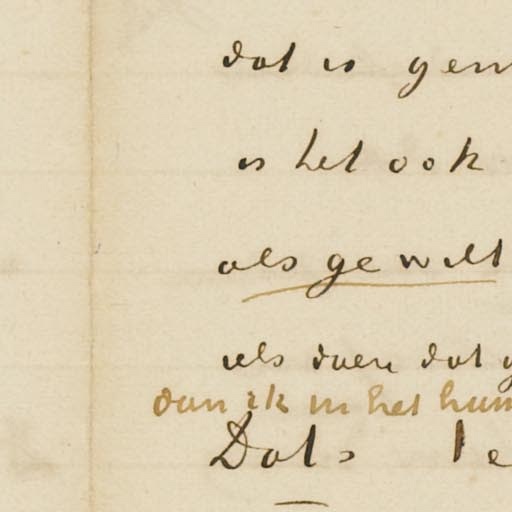 dat is gem
is het ook
als ge wilt
iels doen dat g
dan ik in het hum
Dats le